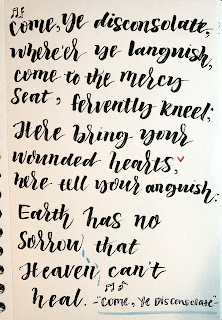 Come, Ye disconsolate,
where'er ye languish,
come to the mercy
seat, fervently kneel;
Here bring your
wounded hearts,
here tell your anguish:
Earth has no
Sorrow that
Heaven can't
heal. -"Come, Ye Disconsolate"-